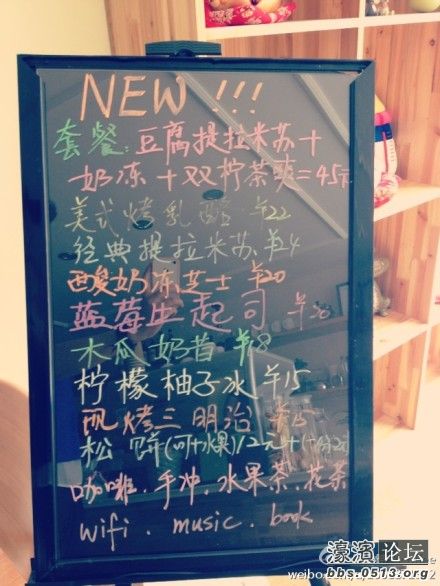 NEW!!!
套餐:豆腐提拉米苏+
奶冻+双柠茶爽=45元
美式烤乳酪 ¥22
经典提拉米苏 ¥24
酸奶冻芝士 ¥20
蓝莓 起司 ¥20
木瓜奶昔 ¥18
柠檬柚子冰 ¥15
现烤三明治 ¥15
松饼(可+水果)12元
咖啡.手冲.水果茶.花茶
wifi. music. book
濠滨论坛
bbs.0513.org